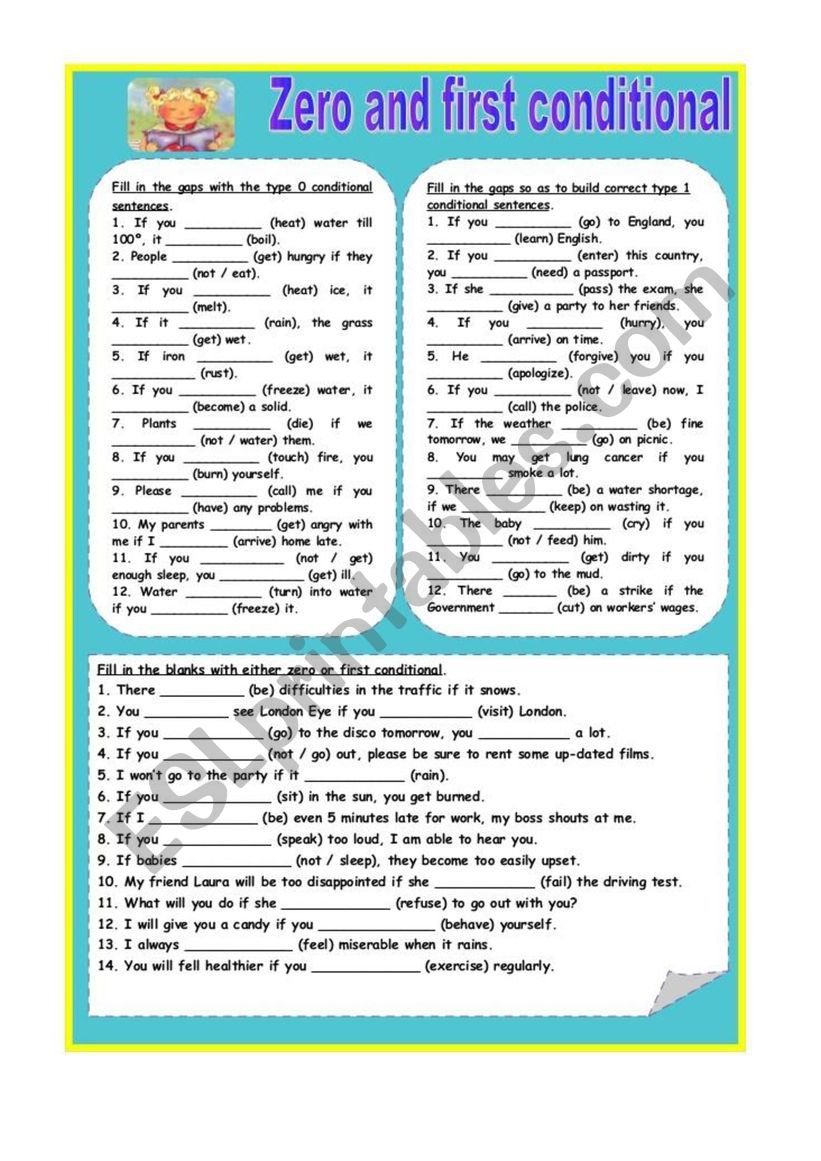 Zero and first conditional
Fill in the gaps with the type 0 conditional
sentences.
1. If you __________ (heat) water till
100º, it __________ (boil).
2. People __________ (get) hungry if they
__________ (not / eat).
3. If you __________ (heat) ice, it
__________ (melt).
4. If it __________ (rain), the grass
__________ (get) wet.
5. If iron __________ (get) wet, it
___________ (rust).
6. If you __________ (freeze) water, it
__________ (become) a solid.
7. Plants __________ (die) if we
___________ (not / water) them.
8. If you __________ (touch) fire, you
__________ (burn) yourself.
9. Please __________ (call) me if you
__________ (have) any problems.
10. My parents ________ (get) angry with
me if I _________ (arrive) home late.
11. If you ___________ (not / get)
enough sleep, you ___________ (get) ill.
12. Water __________ (turn) into water
if you __________ (freeze) it.
Fill in the gaps so as to build correct type 1
conditional sentences.
1. If you __________ (go) to England, you
___________ (learn) English.
2. If you __________ (enter) this country,
you __________ (need) a passport.
3. If she ___________ (pass) the exam, she
__________ (give) a party to her friends.
4. If you __________ (hurry), you
__________ (arrive) on time.
5. He __________ (forgive) you if you
__________ (apologize).
6. If you __________ (not / leave) now, I
__________ (call) the police.
7. If the weather __________ (be) fine
tomorrow, we __________ (go) on picnic.
8. You may get lung cancer if you
__________ smoke a lot.
9. There __________ (be) a water shortage,
if we ___________ (keep) on wasting it.
10. The baby __________ (cry) if you
__________ (not / feed) him.
11. You __________ (get) dirty if you
__________ (go) to the mud.
12. There _______ (be) a strike if the
Government _______ (cut) on workers' wages.
Fill in the blanks with either zero or first conditional.
1. There __________ (be) difficulties in the traffic if it snows.
2. You __________ see London Eye if you ___________ (visit) London.
3. If you ____________ (go) to the disco tomorrow, you ___________ a lot.
4. If you ____________ (not / go) out, please be sure to rent some up-dated films.
5. I won't go to the party if it ____________ (rain).
6. If you _____________ (sit) in the sun, you get burned.
7. If I _____________ (be) even 5 minutes late for work, my boss shouts at me.
8. If you _____________ (speak) too loud, I am able to hear you.
9. If babies _____________ (not / sleep), they become too easily upset.
10. My friend Laura will be too disappointed if she ____________ (fail) the driving test.
11. What will you do if she _____________ (refuse) to go out with you?
12. I will give you a candy if you ______________ (behave) yourself.
13. I always _____________ (feel) miserable when it rains.
14. You will fell healthier if you _____________ (exercise) regularly.
ESLprintables.com